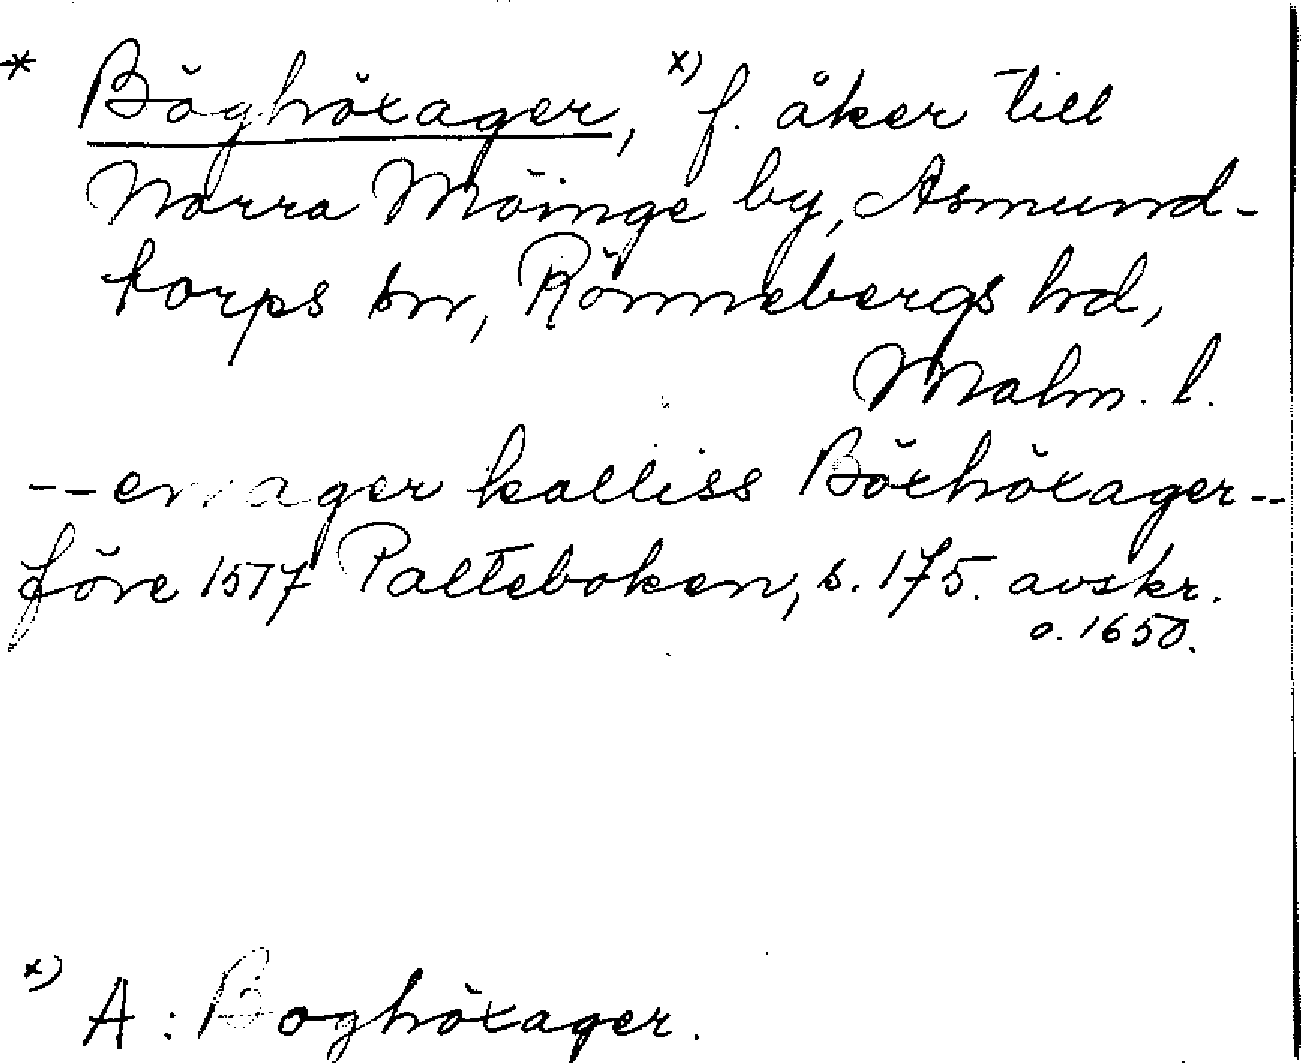 * Böghöxager, x) f. åker till
Norra Möinge by, Asmund-
torps sn, Rönnebergs hd,
Malm. l.
-- en ager kalliss Böxhöxager --
före 1517 Palteboken, s. 175. avskr.
o. 1650.
x) A: Boghöxager.